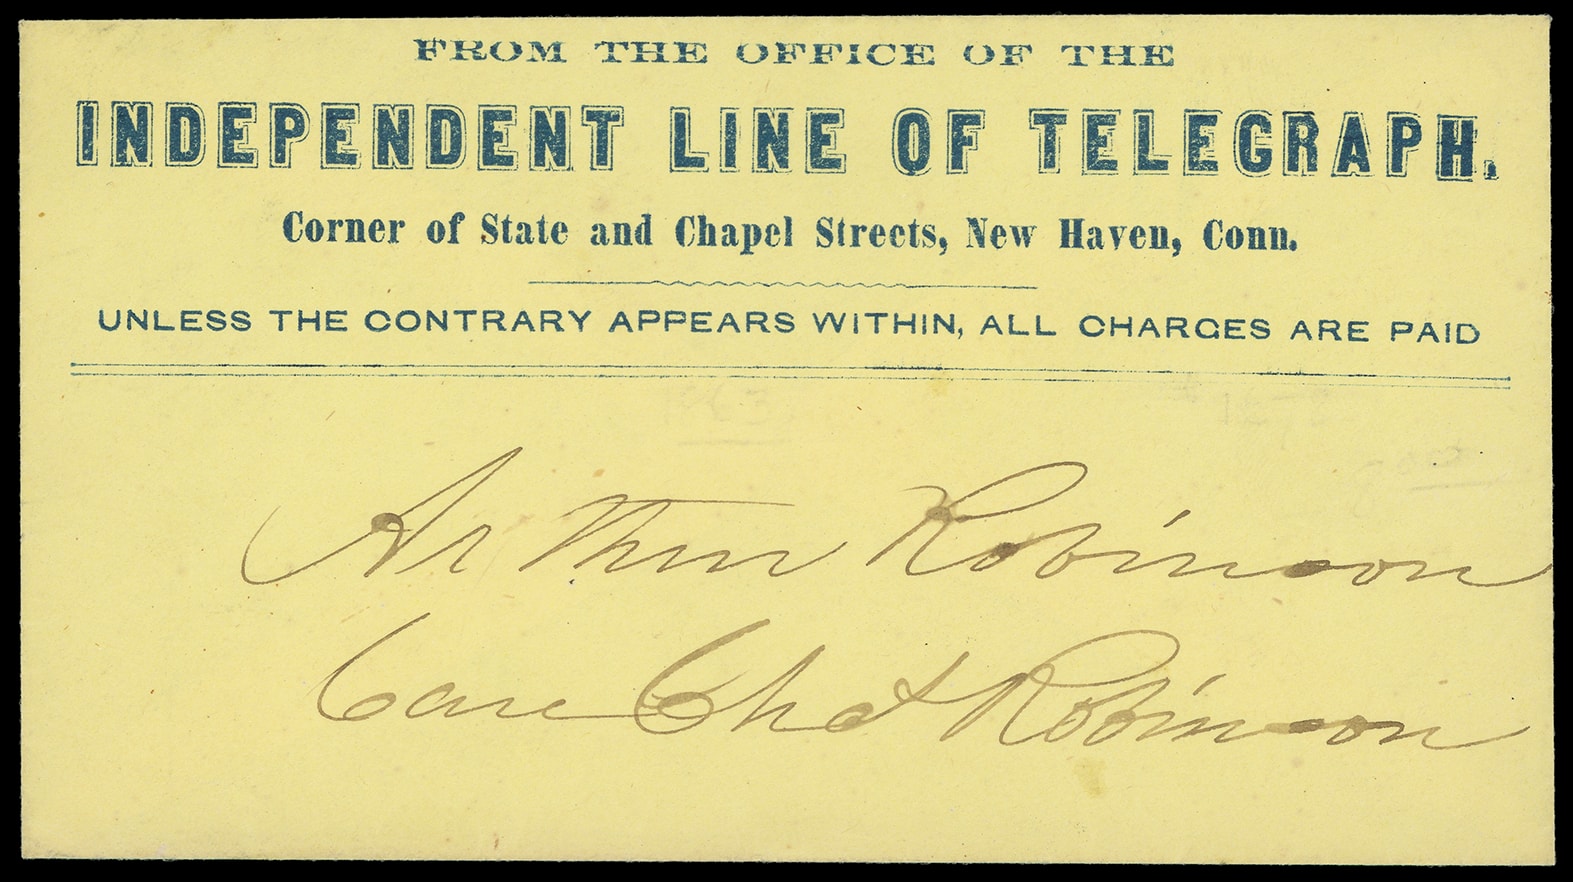 FROM THE OFFICE OF THE
INDEPENDENT LINE OF TELEGRAPH.
Corner of State and Chapel Streets, New Haven, Conn.
UNLESS THE CONTRARY APPEARS WITHIN, ALL CHARGES ARE PAID
Arthur Robinson
Care Chas Robinson